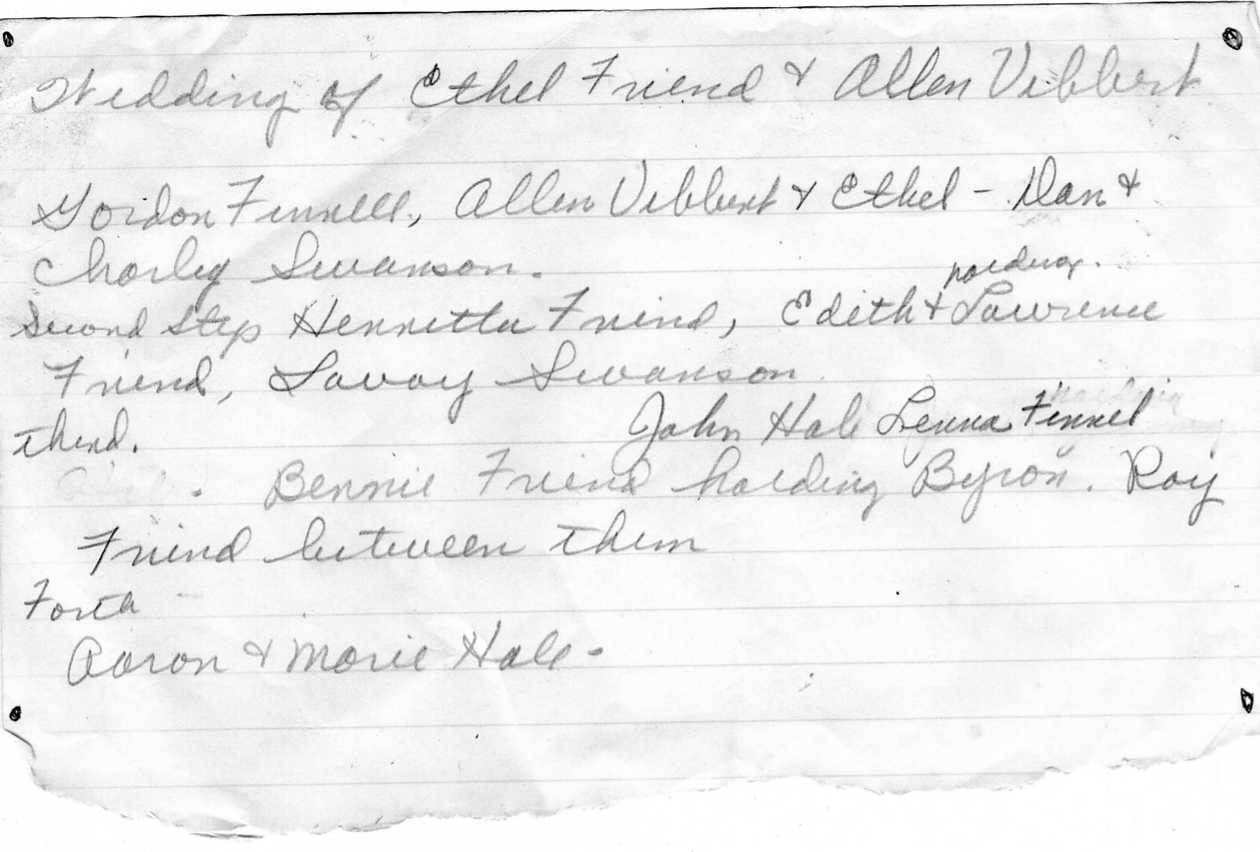 Wedding of Ethel Friend & Allen Vibbert
Gordon Fennell, Allen Vibbert & Ethel - Dan &
Charley Swanson.
holding.
Second Step Henrietta Friend, Edith & Lawrence
Friend, Savoy Swanson
third. John Hale Lenna Fennel
. Bennie Friend holding Byron. Roy
Friend between them
Forth
Aaron & Marie Hale -